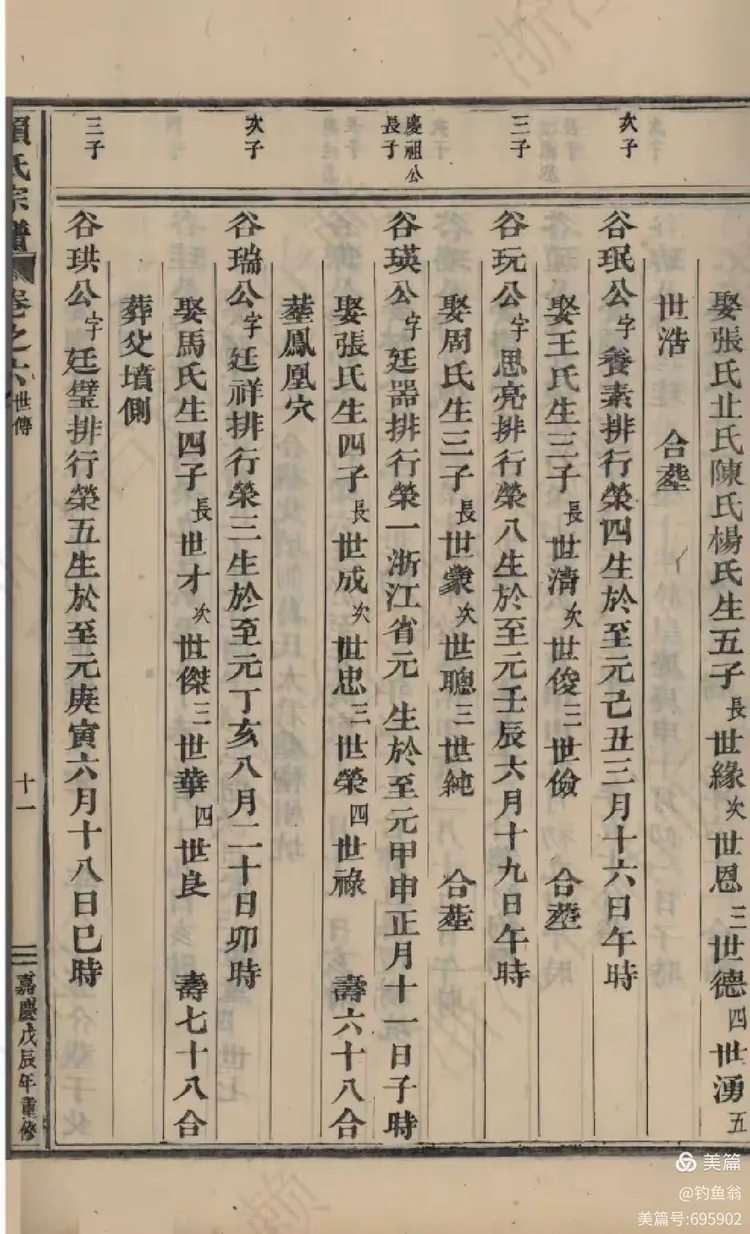 娶張氏㱏氏陳氏楊氏生五子長世緣次世恩三世德四世湧五
世浩　合塟
次子
谷珉公字養素排行榮四生於至元己丑三月十六日午時
娶王氏生三子長世濟次世俊三世儉　合塟
三子
谷玩公字思亮排行榮八生於至元壬辰六月十九日午時
娶周氏生三子長世衆次世聰三世純　合塟
慶祖公
長子
谷瑛公字廷器排行榮一浙江省元　生於至元甲申正月十一日子時
娶張氏生四子長世成次世忠三世榮四世祿　壽六十八合
塟鳳凰穴
次子
谷瑞公字廷祥排行榮三生於至元丁亥八月二十日卯時
娶馬氏生四子長世才次世傑三世華四世良　壽七十八合
葬父墳側
三子
谷珙公字廷璧排行榮五生於至元庚寅六月十八日巳時
氏宗譜
卷之六世傳
十一
嘉慶戊辰年重修
美篇
@钓鱼翁
美篇号:695902